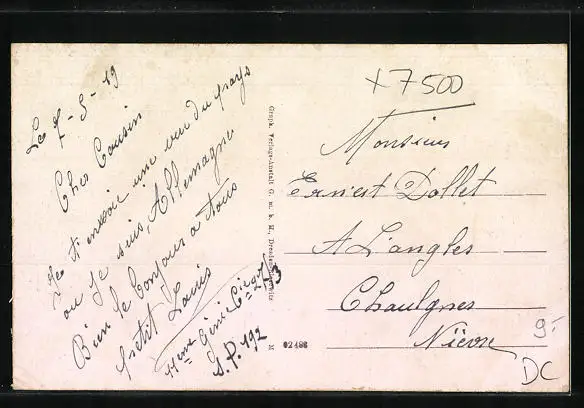 Le 7-5-19
Cher Cousin
Je t'envoie une vue du pays
ou Je suis, Allemagne
Bien le bonjour a tous
Petit Louis
11eme Génie Cie 27/3
S.P. 192
Graph. Verlags-Anstalt G. m. b. H., Dresden
M 02486
X 7500
Monsieur
Ernest Dollet
A Langles
Chaulgnes
Nièvre
9.-
DC